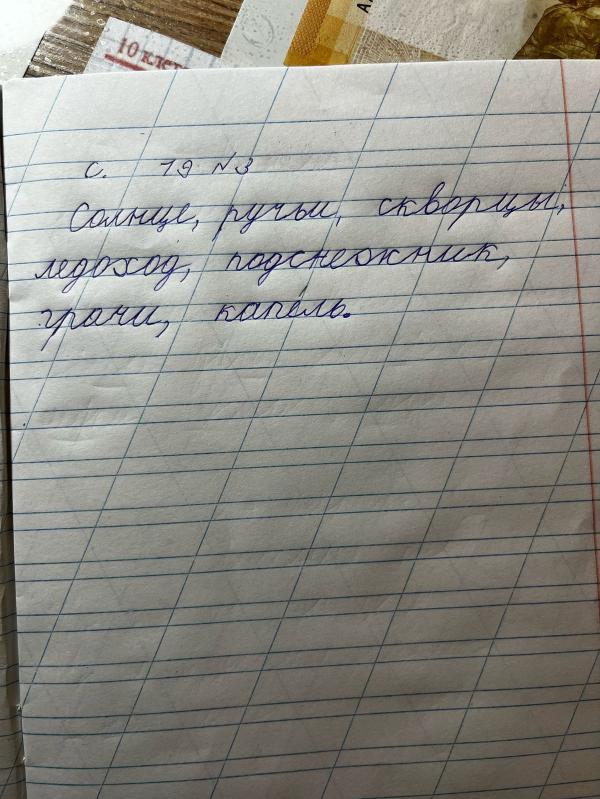 10 клет
А.
с. 19 №3
Солнце, ручьи, скворцы,
ледоход, подснежник,
грачи, капель.